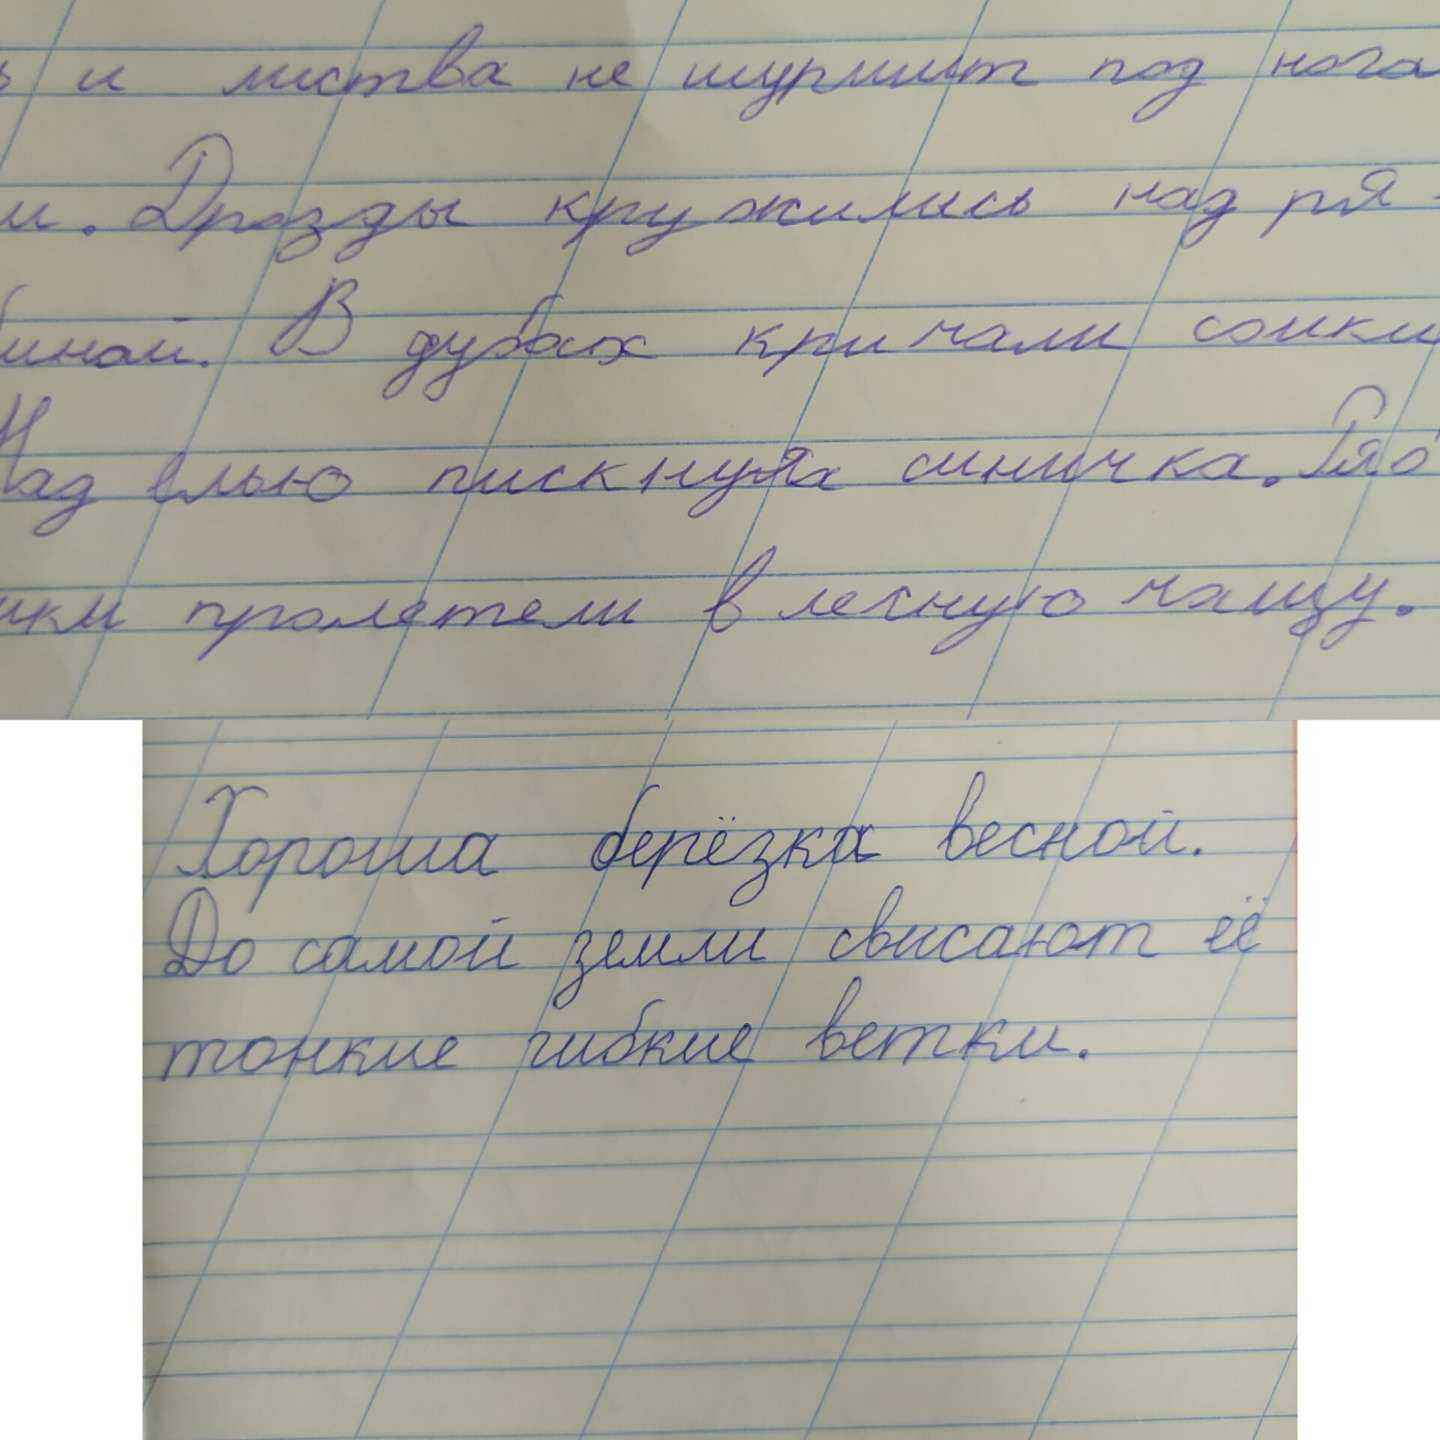 ь и листва не шуршит под нога
ми. Дрозды кружились над ря-
биной. В дубах кричали сойки
Над елью пискнула синичка. Ряб
чики пролетели в лесную чащу.
Хороша берёзка весной.
До самой земли свисают её
тонкие гибкие ветки.